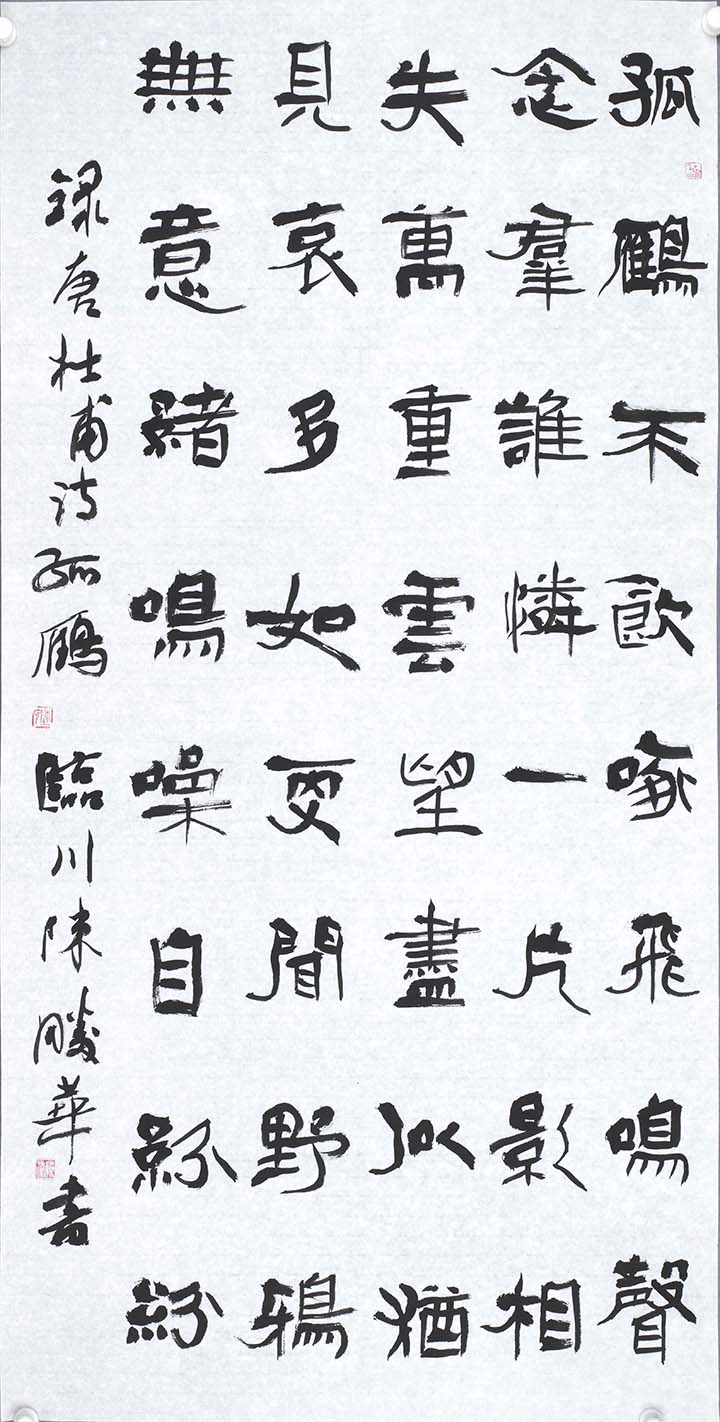 孤鴈不飲啄飛鳴聲
念羣誰憐一片影相
失萬重雲望盡似猶
見哀多如更聞野鴉
無意緒鳴噪自紛紛
録唐杜甫诗孤鴈 臨川陳勝華書